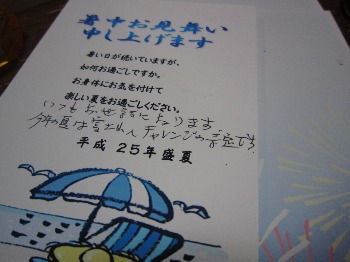 暑中お見舞い
申し上げます
暑い日が続いていますが、
如何お過ごしですか。
お身体にお気を付けて
楽しい夏をお過ごしください。
いつもお世話になります
今年の夏は富士山へチャレンジの予定です
平成 25年盛夏